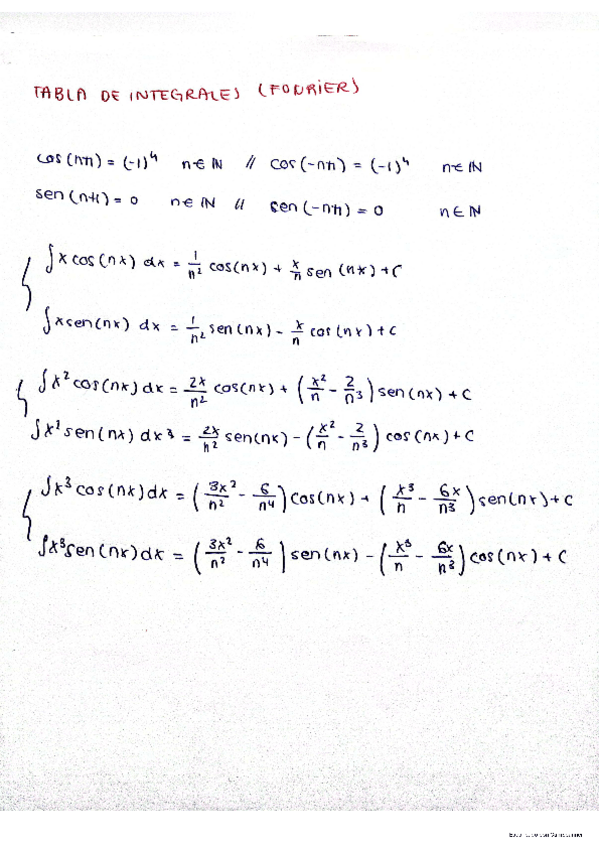 TABLA DE INTEGRALES (FOURIER)
cos(nπ) = (-1)ⁿ n∈ℕ // cos(-nπ) = (-1)ⁿ n∈ℕ
sen(nπ) = 0 n∈ℕ // sen(-nπ) = 0 n∈ℕ
∫x cos(nx) dx = 1/n² cos(nx) + x/n sen(nx) + C
∫x sen(nx) dx = 1/n² sen(nx) - x/n cos(nx) + C
∫x² cos(nx) dx = 2x/n² cos(nx) + (x²/n - 2/n³) sen(nx) + C
∫x² sen(nx) dx³ = 2x/n² sen(nx) - (x²/n - 2/n³) cos(nx) + C
∫x³ cos(nx) dx = (3x²/n² - 6/n⁴) cos(nx) + (x³/n - 6x/n³) sen(nx) + C
∫x³ sen(nx) dx = (3x²/n² - 6/n⁴) sen(nx) - (x³/n - 6x/n³) cos(nx) + C